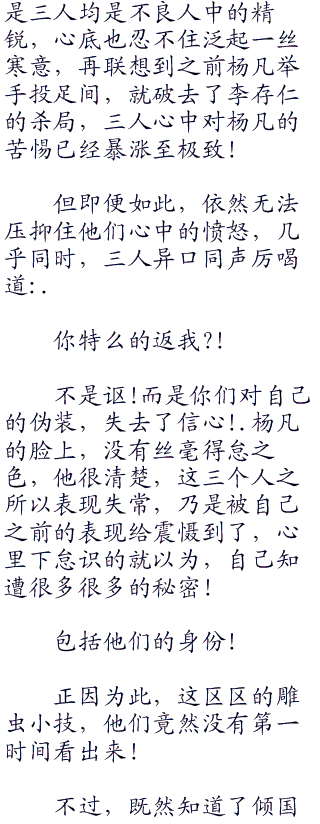 是三人均是不良人中的精
锐，心底也忍不住泛起一丝
寒意，再联想到之前杨凡举
手投足间，就破去了李存仁
的杀局，三人心中对杨凡的
苦惕已经暴涨至极致！
但即便如此，依然无法
压抑住他们心中的愤怒，几
乎同时，三人异口同声厉喝
道：.
你特么的返我?！
不是讴！而是你们对自己
的伪装，失去了信心！.杨凡
的脸上，没有丝毫得怠之
色，他很清楚，这三个人之
所以表现失常，乃是被自己
之前的表现给震慑到了，心
里下怠识的就以为，自己知
遭很多很多的秘密！
包括他们的身份！
正因为此，这区区的雕
虫小技，他们竟然没有第一
时间看出来！
不过，既然知道了倾国